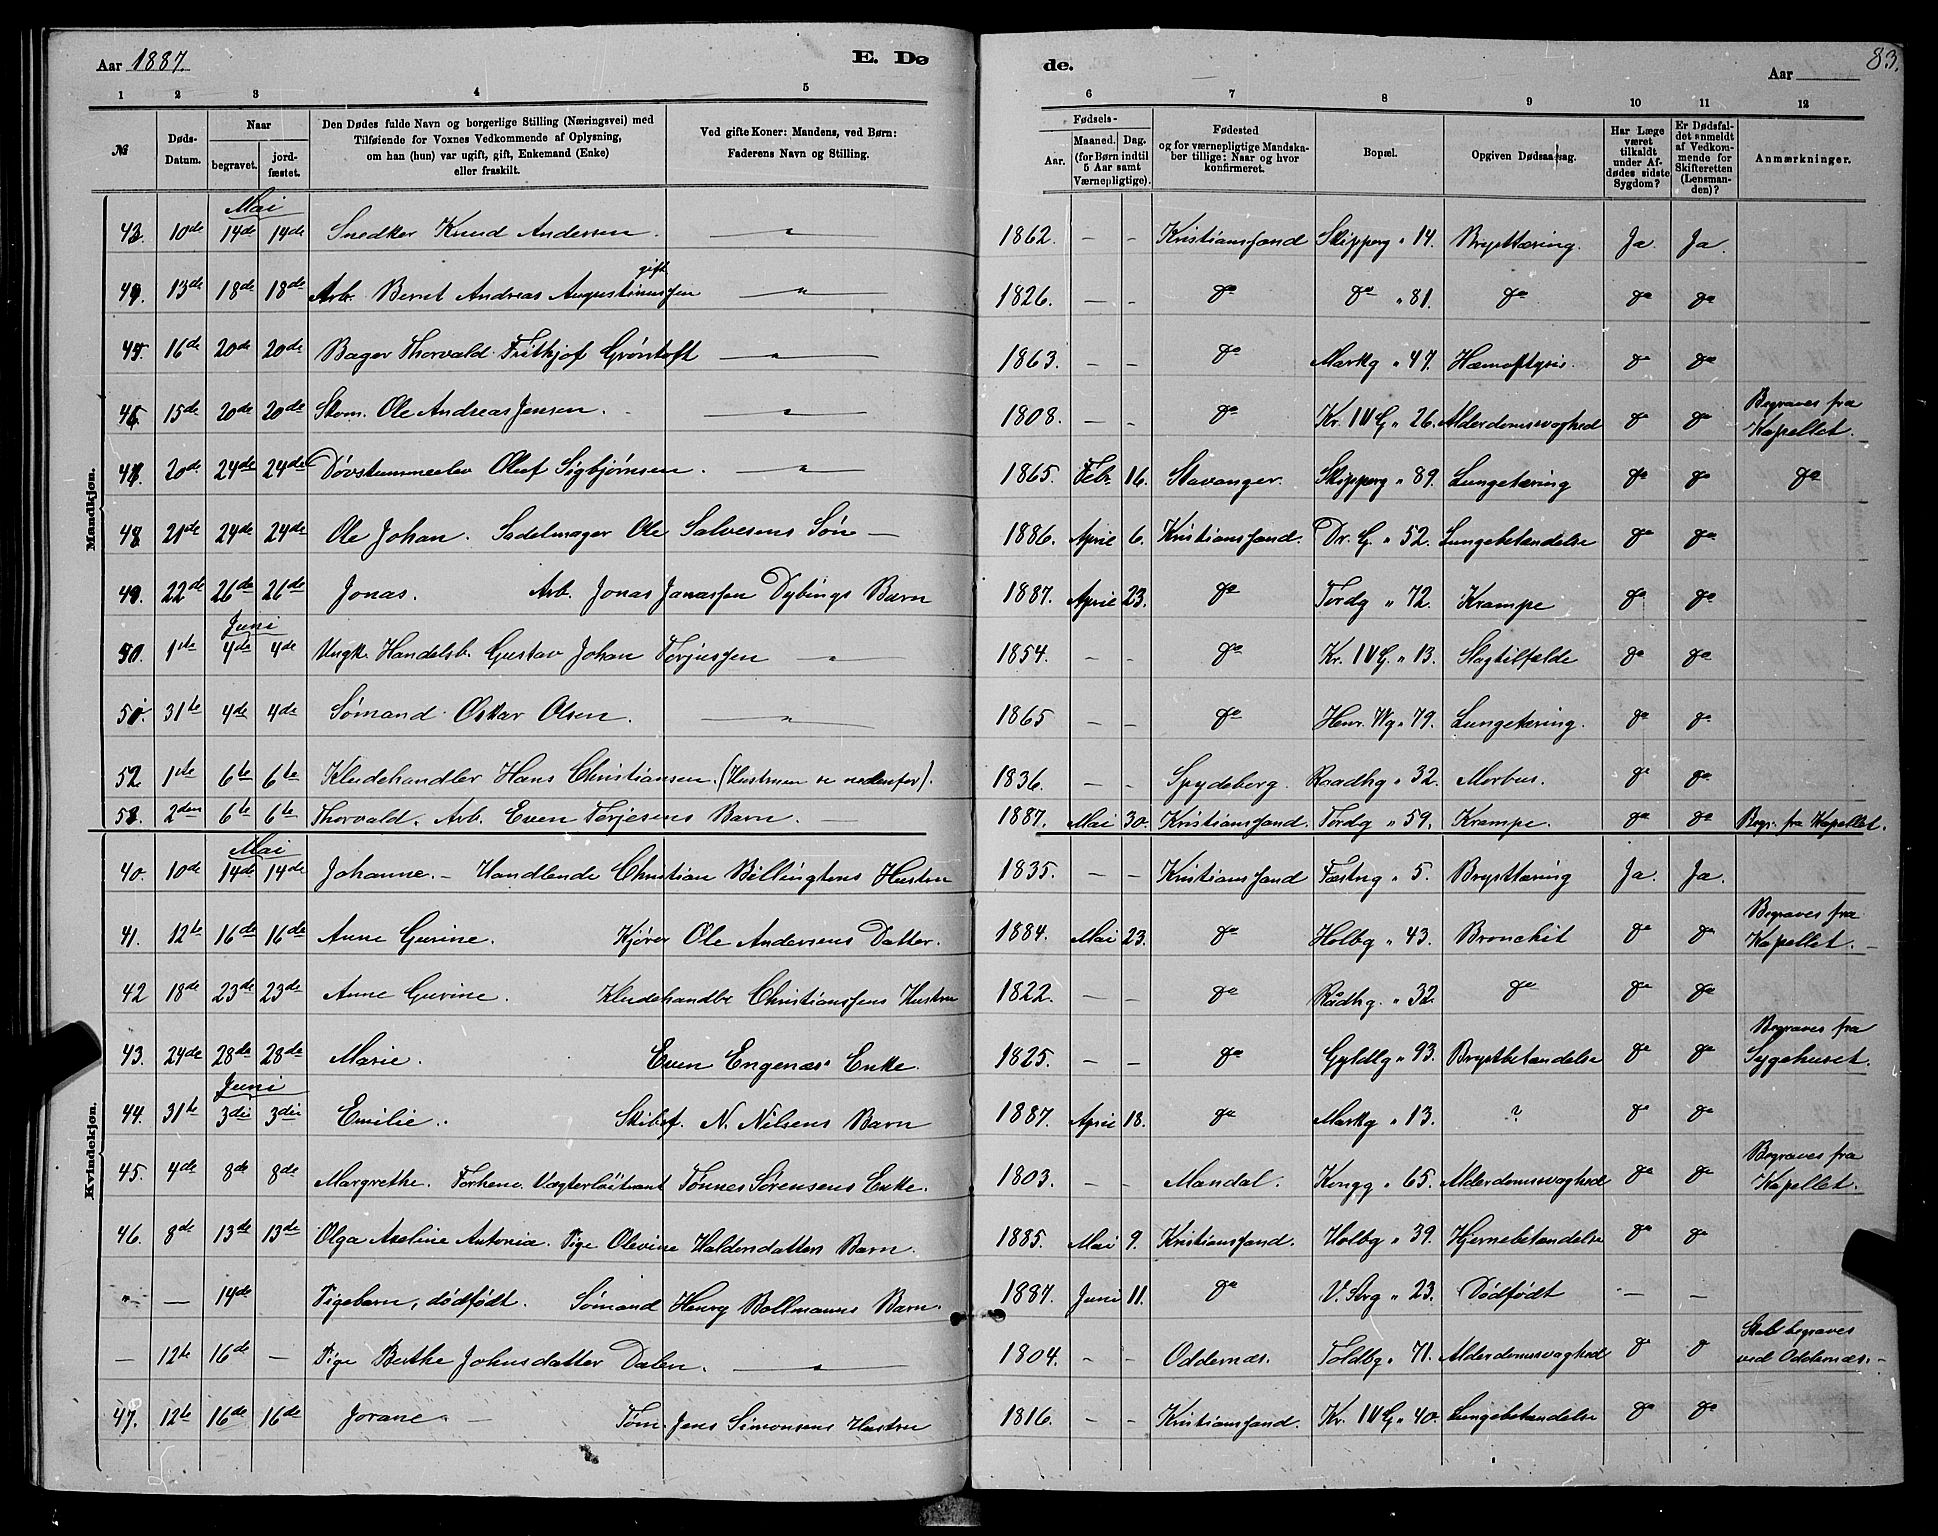 Aar 1887. E. Dø
de. Aar 83.
1 2 3 4 5
6 7 8 9 10 11 12
№ Døds-Datum. Naar begravet. jordfæstet. Den Dødes fulde Navn og borgerlige Stilling (Næringsvei) med Tilføiende for Voxnes Vedkommende af Oplysning, om han (hun) var ugift, gift, Enkemand (Enke) eller fraskilt. Ved gifte Koner: Mandens, ved Børn: Faderens Navn og Stilling.
Fødsels- Aar. Maaned. Dag. (for Børn indtil 5 Aar samt Værnepligtige). Fødested og for værnepligtige Mandskaber tillige: Naar og hvor konfirmeret. Bopæl. Opgiven Dødsaarsag. Har Læge været tilkaldt under Afdødes sidste Sygdom? Er Dødsfaldet anmeldt af Vedkommende for Skifteretten (Lensmanden)? Anmærkninger.
Mandkjøn.
Mai
43. 10de 14de 14de Snedker Knud Andersen. — " — 1862. - - Kristianssand Skipperg " 14. Brysttæring. Ja. Ja.
44. 13de 18de 18de Arb. Bernt Andreas Augustinussen gift — " — 1826. - - do do " 81. do do do
45. 16de 20de 20de Bager Thorvald Frithjof Grøntoft — " — 1863. - - do Markg " 47. Hæmoftysis. do do
46. 15de 20de 20de Skom. Ole Andreas Jensen. — " — 1808. - - do Kr. IV G. " 26. Alderdomssvaghed do do Begraves fra Kapellet.
47. 20de 24de 24de Døvstummeelev Oluf Sigbjørnsen. — " — 1865. Febr. 16. Stavanger. Skipperg " 89. Lungetæring do do do
48. 21de 24de 24de Ole Johan. Sadelmager Ole Salvesens Søn — 1886. April 6. Kristianssand. Dr. G. " 52. Lungebetændelse do do
49. 22de 26de 26de Jonas. Arb. Jonas Jonassen Dybings Barn 1887. April 23. do Tordg " 72. Krampe do do
Juni
50. 1ste 4de 4de Ungk. Handelsb. Gustav Johan Torjussen " 1854. - - do Kr. IV G. " 13. Slagtilfælde do do
51. 31te 4de 4de Sømand Oskar Olsen. — " — 1865 - - do Henr. Wg " 79. Lungetæring. do do
52 1ste 6te 6te Kludehandler Hans Christiansen. (Hustruen se nedenfor). 1836. - - Spydeberg. Raadhg " 32. Morbus. do do
53. 2den 6te 6te Thorvald. Arb. Even Torjesens Barn. — 1887. Mai 30. Kristianssand. Tordg " 59. Krampe. do do Begr. fra Kapellet.
Kvindekjøn.
Mai
40. 10de 14de 14de Johanne. - Handlende Christian Billingtons Hustru 1835. - - Kristianssand Fæstng " 5. Brysttæring Ja. Ja.
41. 12te 16de 16de Anne Gurine. Kjører Ole Andersens Datter. 1884. Mai 23. do Holbg " 43. Bronchit do do Begraves fra Kapellet. -
42 18de 23de 23de Anne Gurine. Kludehandler Christianssens Hustru 1822. - - do Raadhg. " 32. do do do
43. 24de 28de 28de Marie. Even Engenæs' Enke. 1825. - - do Gyldlg " 93. Brystbetændelse do do Begraves fra Sygehuset.
Juni
44. 31te 3die 3die Emilie. Skibsf. N. Nilsens Barn 1887. April 18. do Markg " 13. ? do do
45. 4de 8de 8de Margrethe. Forhenv. Vægterløitnant Tønnes Sørensens Enke. 1803. - - Mandal. Kongg " 65. Alderdomssvaghed do do Begraves fra Kapellet.
46. 8de 13de 13de Olga Axeline Antonia. Pige Olevine Haldorsdatters Barn. 1885. Mai 9. Kristianssand. Holbg " 39. Hjernebetændelse do do
" — 14de Pigebarn, dødfødt. Sømand Henry Bollmanns Barn. 1887. Juni 11. do V. Strg " 23. Dødfødt - -
— 12te 16de — Pige Berthe Johnsdatter Dalen. — " — 1804. - - Oddernæs. Toldbg " 71. Alderdomssvaghed do do Skal begraves ved Oddernæs. -
47. 12te 16de 16de Jorane - Tøm. Jens Simonsens Hustru 1816. - - Kristianssand. Kr. IV G " 40. Lungebetændelse do do